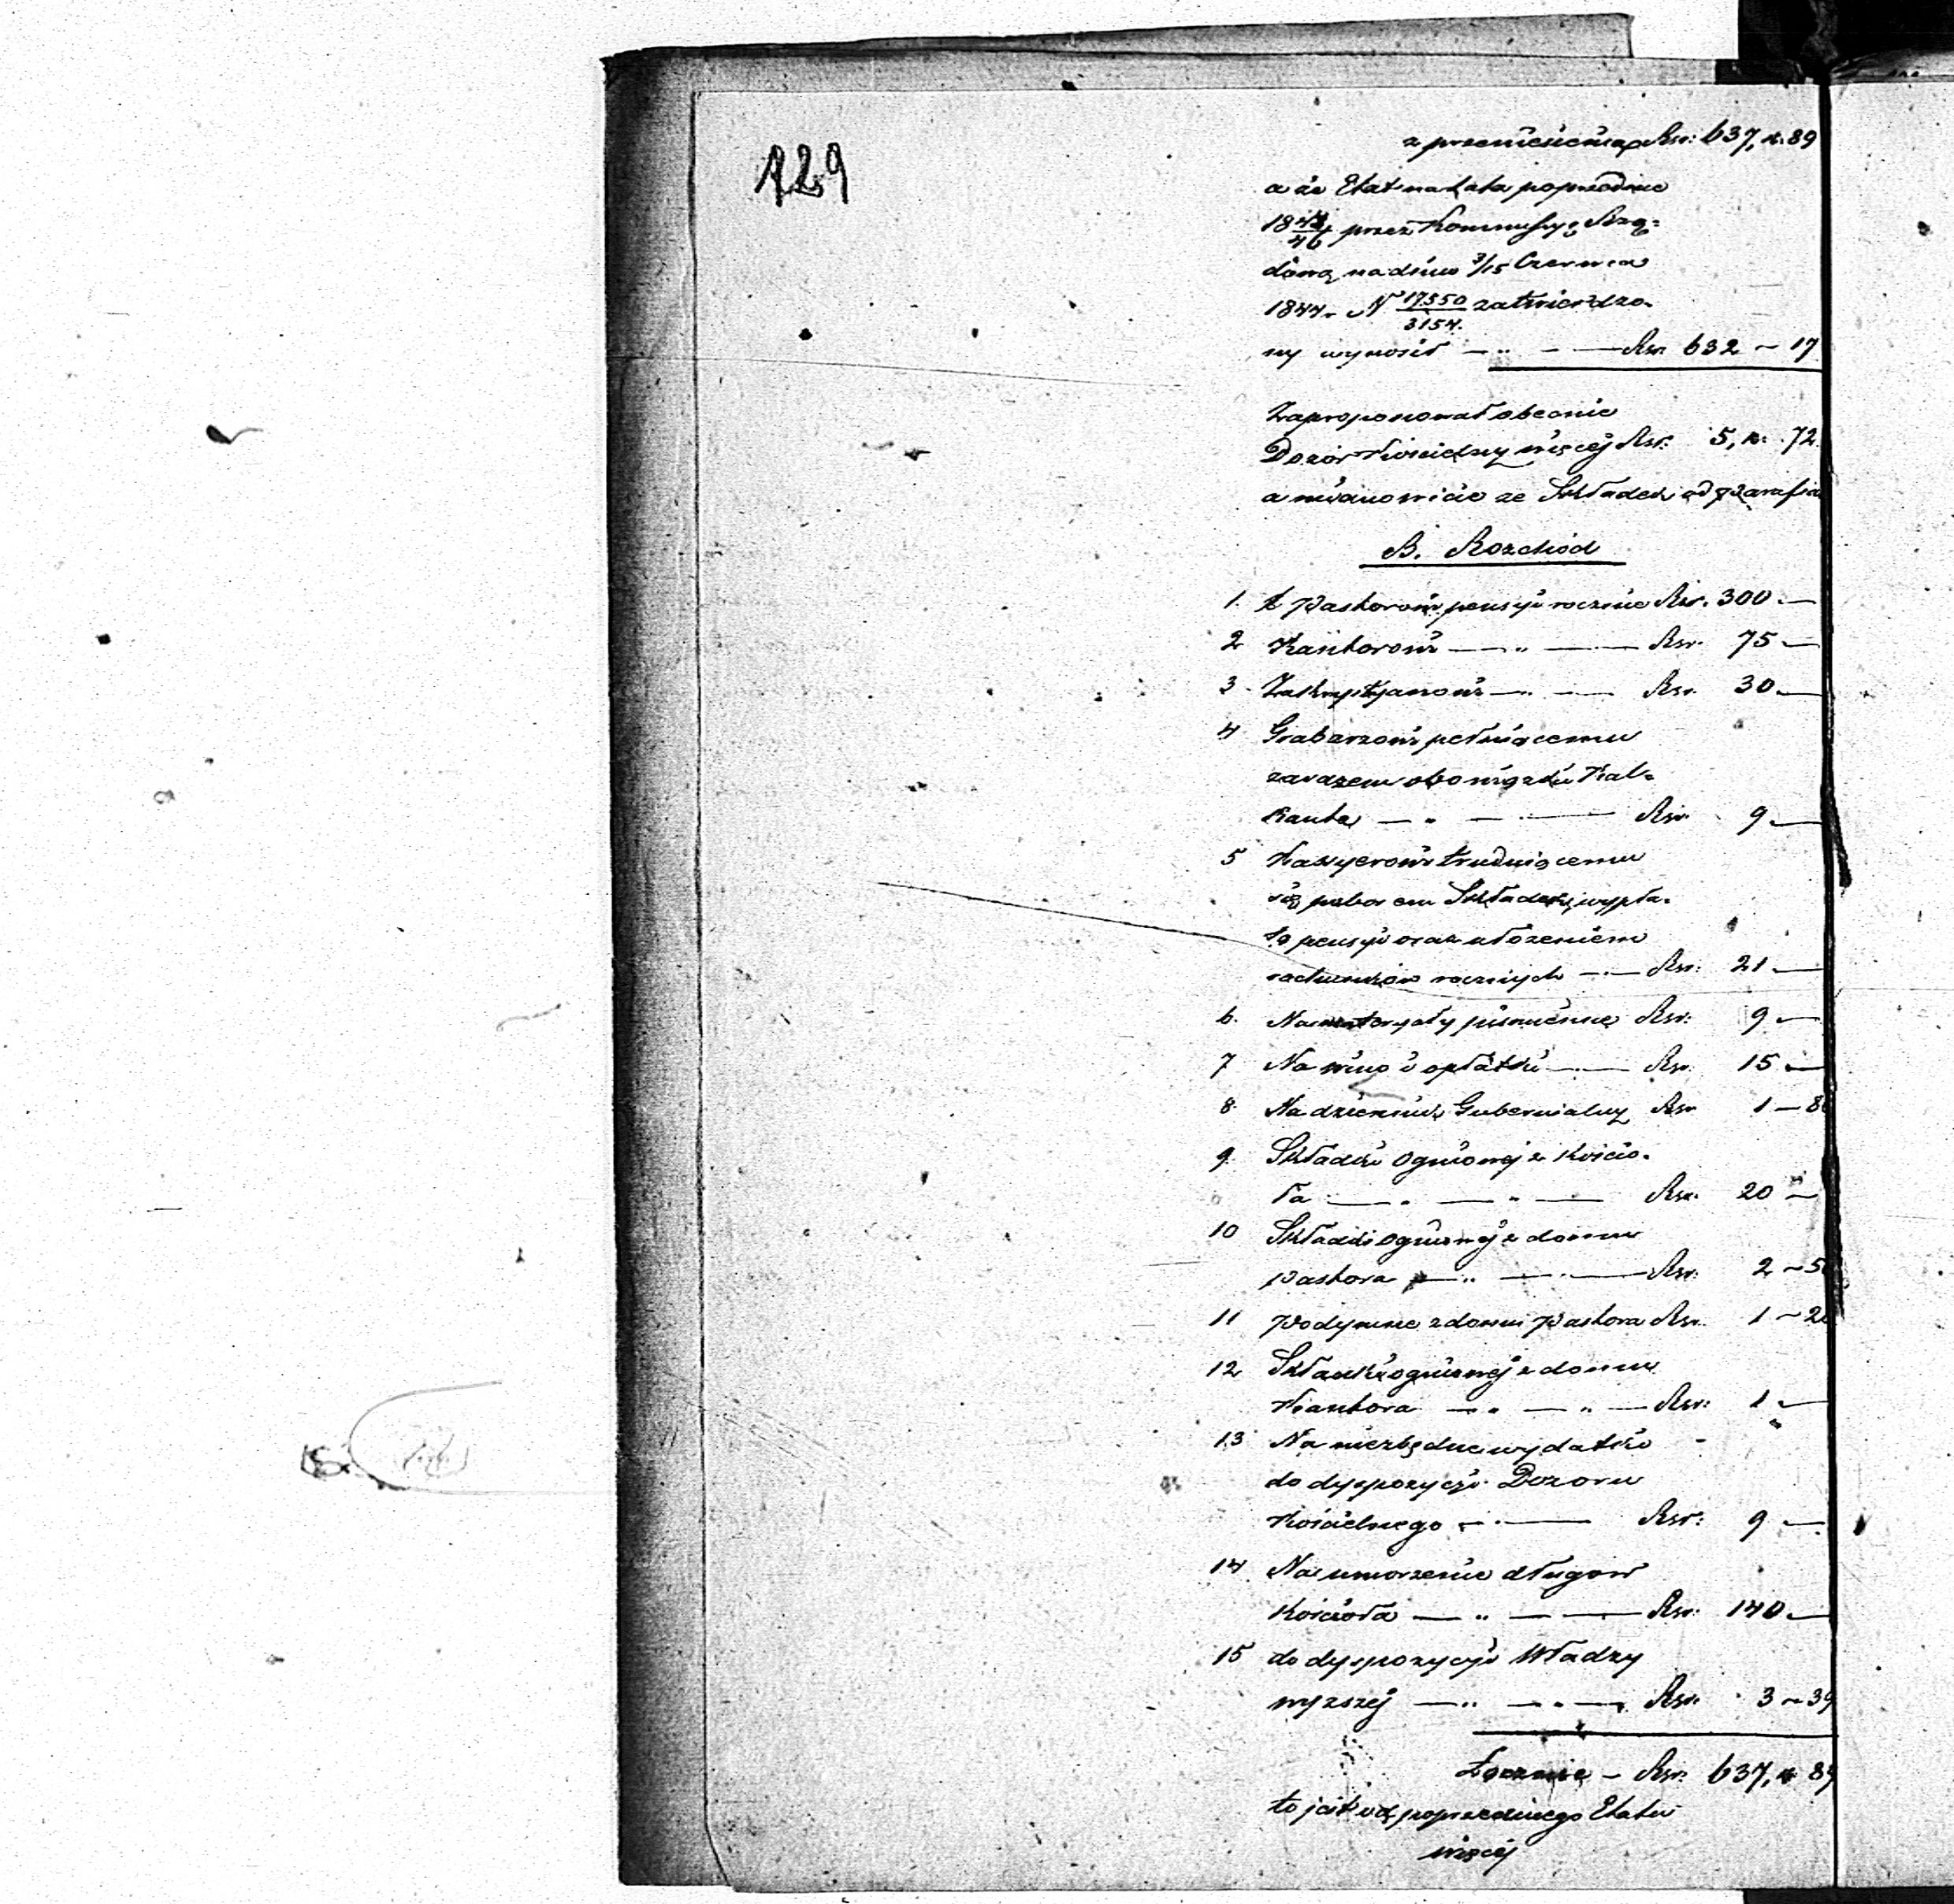 129
z przeniesienia Rsr: 637, k. 89
a że Etat na Lata poprzednie
1844/46 przez Kommissyę Rzą=
dową na dniu 3/15 Czerwca
1844. N 17550/3154. zatwierdzo-
ny wynosił — „ — — Rsr 632 — 17
Zaproponował obecnie
Dozór Kościelny więcej Rsr. 5, k. 72
a mianowicie ze Składek od Parafia
B. Rozchód
1. Pastorowi pensyi rocznie Rsr. 300 —
2 Kantorowi — „ — Rsr. 75 —
3 Zakrystyanowi — „ — Rsr. 30 —
4 Grabarzowi pełniącemu
zarazem obowiązki Kal-
kanta — „ — — Rsr. 9 —
5 Kassyerowi trudniącemu
się poborem Składek, wypła-
tą pensyi oraz ułożeniem
rachunków rocznych — Rsr: 21 —
6. Na materyały piśmienne Rsr: 9 —
7 Na wino i opłatki — Rsr. 15 —
8. Na dziennik Gubernialny Rsr 1 — 8
9 Składki Ogniowej z Kościo-
ła — „ — „ — Rsr. 20 —
10 Składki ogniowej z domu
Pastora — „ — — Rsr. 2 — 5
11 Podymne z domu Pastora Rsr. 1 — 2
12 Składki ogniowej z domu
Kantora — „ — „ — Rsr: 1 —
13 Na niezbędne wydatki
do dyspozycyi Dozoru
Kościelnego — — Rsr: 9 —
14 Na umorzenie długów
Kościoła — „ — — Rsr: 140 —
15 do dyspozycyi Władzy
wyższej — „ — „ — Rsr. 3 — 39
Łącznie — Rsr. 637, k 89
to jest od poprzedniego Etatu
więcej